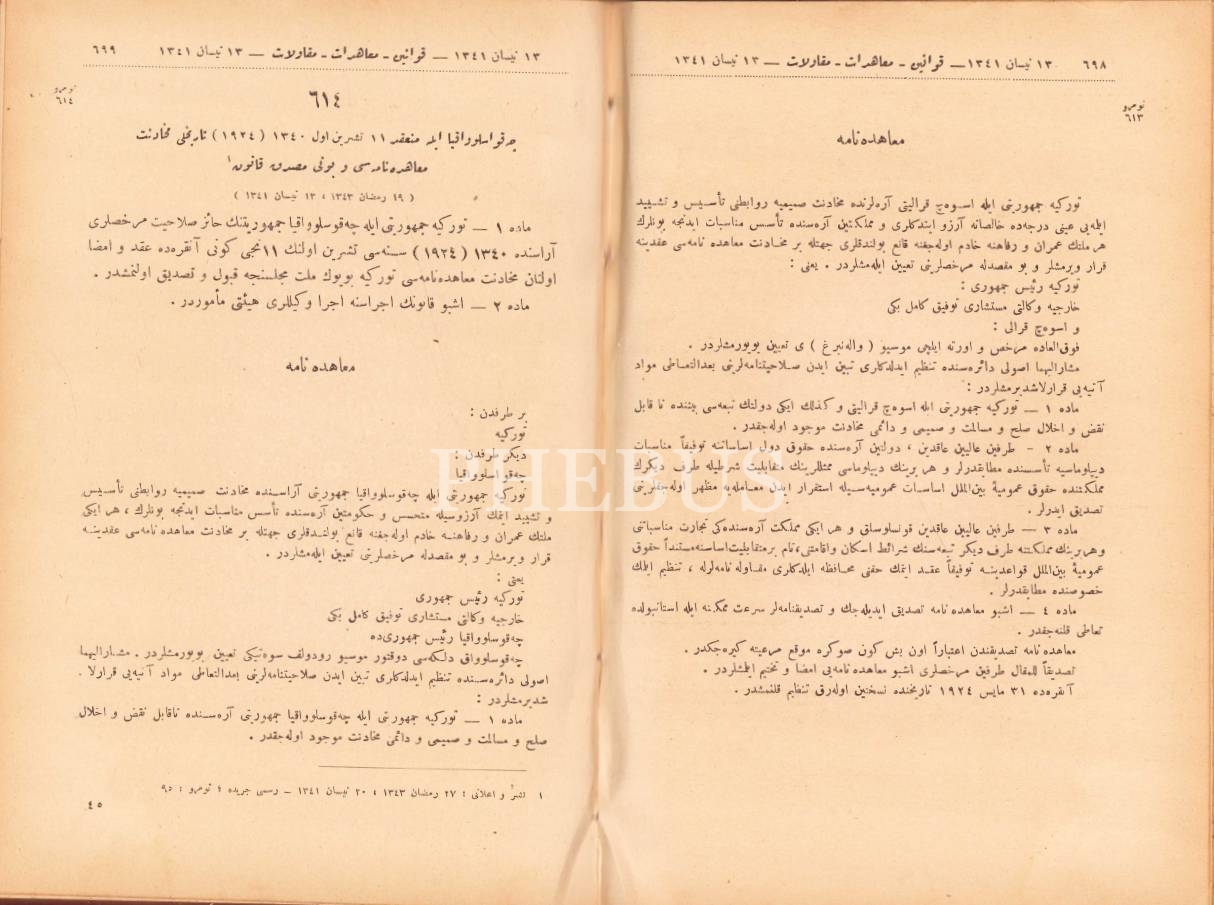 ٦٩٨ ١٣ نيسان ١٣٤١ — قوانين - معاهدات - مقاولات — ١٣ نيسان ١٣٤١
نومرو
٦١٣
معاهده نامه
توركيه جمهوريتى ايله اسوه‌چ قراليتى آره‌لرنده مخادنت صميميه روابطنى تأسيس و تشييد
ايله‌يى عينى درجه‌ده خالصانه آرزو ايتدكلرى و مملكتين آره‌سنده تأسس مناسبات ايدنجه بونلرك
هر ملتك عمران و رفاهنه خادم اوله‌جغنه قانع بولندقلرى جهتله بر مخادنت معاهده نامه‌سى عقدينه
قرار ويرمشلر و بو مقصدله مرخصلرينى تعيين ايله‌مشلردر . يعنى :
توركيه رئيس جمهورى :
خارجيه وكالتى مستشارى توفيق كامل بكى
و اسوه‌چ قرالى :
فوق‌العاده مرخص و اورته ايلچى موسيو ( واله‌نبرغ ) ى تعيين بويورمشلردر .
مشاراليهما اصولى دائره‌سنده تنظيم ايدلدكلرى تبين ايدن صلاحيتنامه‌لرينى بعدالتعاطى مواد
آتيه‌يى قرارلاشديرمشلردر :
ماده ١ — توركيه جمهوريتى ايله اسوه‌چ قراليتى و كذلك ايكى دولتك تبعه‌سى بيننده نا قابل
نقض و اخلال صلح و مسالمت و صميمى و دائمى مخادنت موجود اوله‌جقدر .
ماده ٢ - طرفين عاليين عاقدين ، دولتين آره‌سنده حقوق دول اساساتنه توفيقاً مناسبات
ديپلوماسيه تأسسنده مطابقدرلر و هر برينك ديپلوماسى ممثللرينك متقابليت شرطيله طرف ديكرك
مملكتنده حقوق عموميۀ بين‌الملل اساسات عموميه‌سيله استقرار ايدن معامله‌يه مظهر اوله‌جقلرينى
تصديق ايدرلر .
ماده ٣ — طرفين عاليين عاقدين قونسلوسلق و هر ايكى مملكت آره‌سنده‌كى تجارت مناسباتنى
وهر برينك مملكتنه طرف ديكر تبعه‌سنك شرائط اسكان واقامتنى، تام بر متقابليت اساسنه مستنداً حقوق
عموميۀ بين‌الملل قواعدينه توفيقاً عقد ايتمك حقنى محافظه ايلدكلرى مقاوله نامه‌لرله ، تنظيم ايلمك
خصوصنده مطابقدرلر .
ماده ٤ — اشبو معاهده نامه تصديق ايديله‌جك و تصديقنامه‌لر سرعت ممكنه ايله استانبولده
تعاطى قلنه‌جقدر .
معاهده نامه تصديقندن اعتباراً اون بش كون صوكره موقع مرعيته كيره‌جكدر .
تصديقاً للمقال طرفين مرخصلرى اشبو معاهده نامه‌يى امضا و تختيم ايلمشلردر .
آنقره‌ده ٣١ مايس ١٩٢٤ تاريخنده نسختين اوله‌رق تنظيم قلنمشدر .
١٣ نيسان ١٣٤١ — قوانين - معاهدات - مقاولات — ١٣ نيسان ١٣٤١ ٦٩٩
نومرو
٦١٤
٦١٤
چه‌قوسلوواقيا ايله منعقد ١١ تشرين اول ١٣٤٠ ( ١٩٢٤ ) تاريخلى مخادنت
معاهده نامه‌سى و بونى مصدق قانون ١
( ١٩ رمضان ١٣٤٣ ، ١٣ نيسان ١٣٤١ )
ماده ١ — توركيه جمهوريتى ايله چه‌قوسلوواقيا جمهوريتنك حائز صلاحيت مرخصلرى
آراسنده ١٣٤٠ ( ١٩٢٤ ) سنه‌سى تشرين اولنك ١١نجى كونى آنقره‌ده عقد و امضا
اولنان مخادنت معاهده‌نامه‌سى توركيه بويوك ملت مجلسنجه قبول و تصديق اولنمشدر .
ماده ٢ — اشبو قانونك اجراسنه اجرا وكيللرى هيئتى مأموردر .
معاهده نامه
بر طرفدن :
توركيه
ديكر طرفدن :
چه‌قوسلوواقيا
PHEBUS
توركيه جمهوريتى ايله چه‌قوسلوواقيا جمهوريتى آراسنده مخادنت صميميه روابطنى تأسيس
و تشييد ايتمك آرزوسيله متحسس و حكومتين آره‌سنده تأسس مناسبات ايدنجه بونلرك ، هر ايكى
ملتك عمران و رفاهنه خادم اوله‌جغنه قانع بولندقلرى جهتله بر مخادنت معاهده نامه‌سى عقدينه
قرار ويرمشلر و بو مقصدله مرخصلرينى تعيين ايله‌مشلردر .
يعنى :
توركيه رئيس جمهورى
خارجيه وكالتى مستشارى توفيق كامل بكى
چه‌قوسلوواقيا رئيس جمهورى‌ده
چه‌قوسلوواق دلكه‌سى دوقتور موسيو رودولف سوه‌تيكى تعيين بويورمشلردر . مشاراليهما
اصولى دائره‌سنده تنظيم ايدلدكلرى تبين ايدن صلاحيتنامه‌لرينى بعدالتعاطى مواد آتيه‌يى قرارلا .
شديرمشلردر :
ماده ١ — توركيه جمهوريتى ايله چه‌قوسلوواقيا جمهوريتى آره‌سنده ناقابل نقض و اخلال
صلح و مسالمت و صميمى و دائمى مخادنت موجود اوله‌جقدر .
١ نشر و اعلانى : ٢٧ رمضان ١٣٤٣ ، ٢٠ نيسان ١٣٤١ — رسمى جريده ؛ نومرو : ٩٥
٤٥